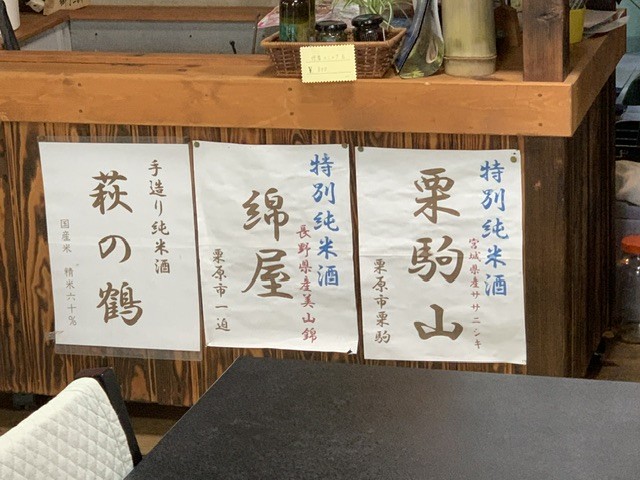 特別純米酒
宮城県産ササニシキ
栗駒山
栗原市栗駒
特別純米酒
長野県産美山錦
綿屋
栗原市一迫
手造り純米酒
萩の鶴
国産米 精米六十%